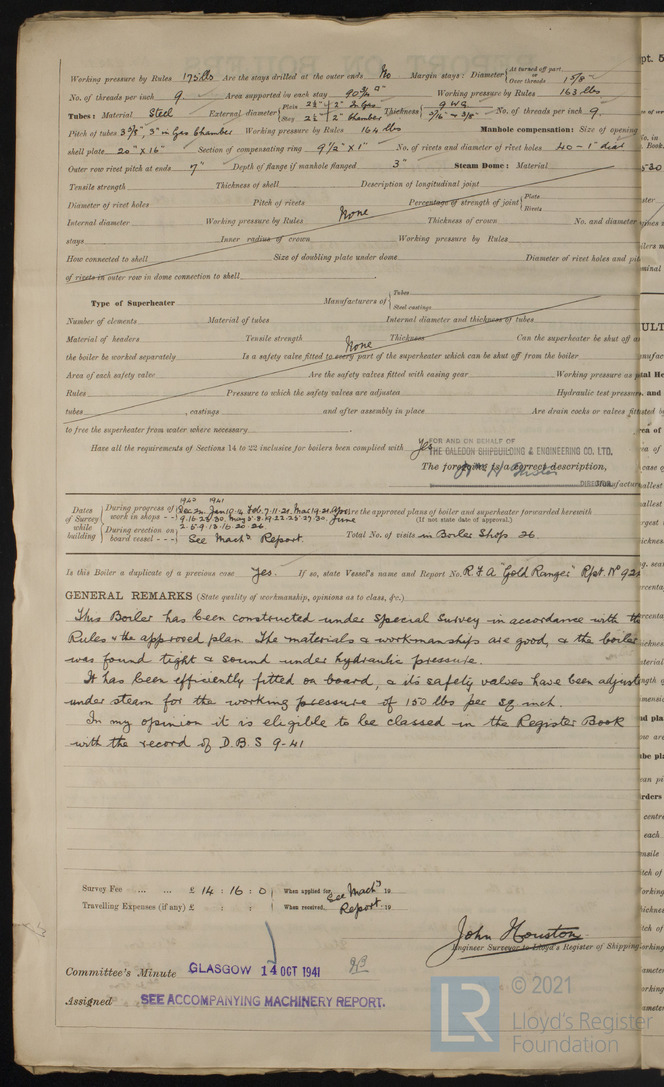 Working pressure by Rules 175 lbs Are the stays drilled at the outer ends No Margin stays: Diameter { At turned off part, or Over threads 1 5/8"
No. of threads per inch 9 Area supported by each stay 90 Working pressure by Rules 163 lbs
Tubes: Material Steel External diameter { Plain 2½" Stay 2½" Thickness { 9 WG 5/16" & 3/8" No. of threads per inch 9.
Pitch of tubes Working pressure by Rules 164 lbs Manhole compensation: Size of opening
shell plate 20" x 16" Section of compensating ring 9½" x 1" No. of rivets and diameter of rivet holes 40 - 1" dia
Outer row rivet pitch at ends 7" Depth of flange if manhole flanged 3" Steam Dome: Material
Tensile strength Thickness of shell Description of longitudinal joint
Diameter of rivet holes Pitch of rivets None Percentage of strength of joint { Plate Rivets
Internal diameter Working pressure by Rules Thickness of crown No. and diameter
stays Inner radius of crown Working pressure by Rules
How connected to shell Size of doubling plate under dome Diameter of rivet holes and
of rivets in outer row in dome connection to shell
Type of Superheater Manufacturers of { Tubes Steel castings
Number of elements Material of tubes Internal diameter and thickness of tubes
Material of headers Tensile strength None Thickness Can the superheater be shut off
the boiler be worked separately Is a safety valve fitted to every part of the superheater which can be shut off from the boiler
Area of each safety valve Are the safety valves fitted with easing gear Working pressure
Rules Pressure to which the safety valves are adjusted Hydraulic test pressure
tubes , castings and after assembly in place Are drain cocks or valves
to free the superheater from water where necessary
Have all the requirements of Sections 14 to 22 inclusive for boilers been complied with Yes
FOR AND ON BEHALF OF
THE CALEDON SHIPBUILDING & ENGINEERING CO. LTD.
The foregoing is a correct description,
DIRECTOR
Dates of Survey while building
During progress of work in shops - - 1940 Dec. 1941 Jan Feb. 7. 11. 21. Mar. 19. 21. Apr. May June
Are the approved plans of boiler and superheater forwarded herewith
(If not state date of approval.)
During erection on board vessel - - - See Mach'y Report. Total No. of visits in Boiler Shops 26.
Is this Boiler a duplicate of a previous case Yes. If so, state Vessel's name and Report No. R.F.A "Gold Ranger" Rpt. No 92
GENERAL REMARKS (State quality of workmanship, opinions as to class, &c.)
This Boiler has been constructed under Special Survey in accordance with the
Rules & the approved plan. The materials & workmanships are good, & the boiler
was found tight & sound under hydraulic pressure.
It has been efficiently fitted on board, & its safety valves have been
under steam for the working pressure of 150 lbs per sq inch.
In my opinion it is eligible to be classed in the Register Book
with the record of D.B.S 9-41
Survey Fee ... ... £ 14 : 16 : 0 When applied for, See Mach'y 19
Travelling Expenses (if any) £ : : When received, Report. 19
John Houston
Engineer Surveyor to Lloyd's Register of Shipping.
Committee's Minute GLASGOW 14 OCT 1941
Assigned SEE ACCOMPANYING MACHINERY REPORT.
LR © 2021
Lloyd's Register
Foundation